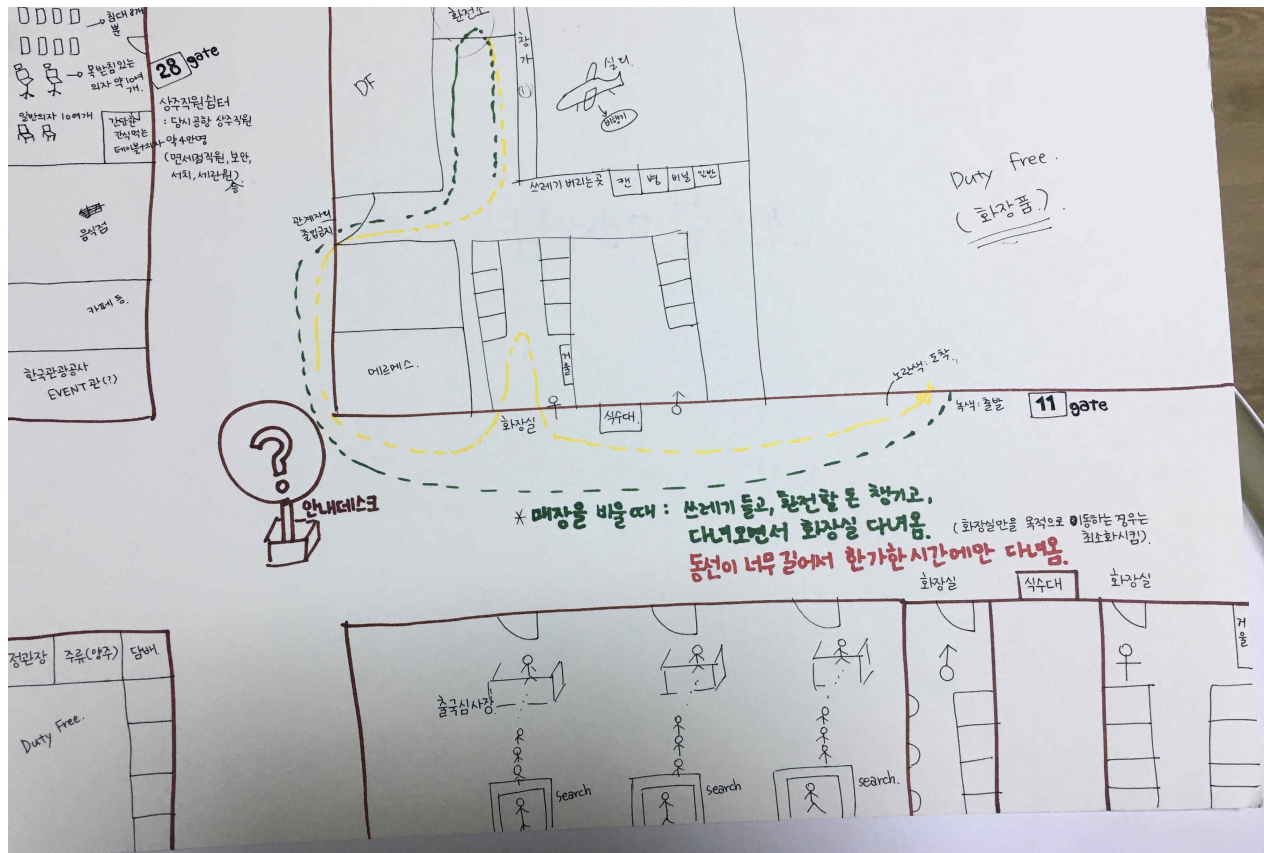 침대 8개
뿐
목받침있는
의자 약 10여
개.
일반의자 10여개
간단한
간식먹는
테이블+의자
28 gate
상주직원쉼터
: 당시공항 상주직원
약 4만명
(면세점직원, 보안,
서치, 세관원)
등
음식점
카페 등.
한국관광공사
EVENT 관(?)
환전소
DF
창가
실외.
비행기
쓰레기 버리는곳
캔
병
비닐
일반
관계자외
출입금지
Duty Free.
(화장품.)
에르메스.
거울
화장실
식수대.
노란색: 도착.
녹색: 출발
11 gate
?
안내데스크
* 매장을 비울때: 쓰레기 들고, 환전할 돈 챙기고,
다녀오면서 화장실 다녀옴.
(화장실만을 목적으로 이동하는 경우는
최소화시킴).
동선이 너무 길어서 한가한 시간에만 다녀옴.
화장실
식수대
화장실
거울
정관장
주류(양주)
담배
Duty Free.
출국심사장
search
search
search.